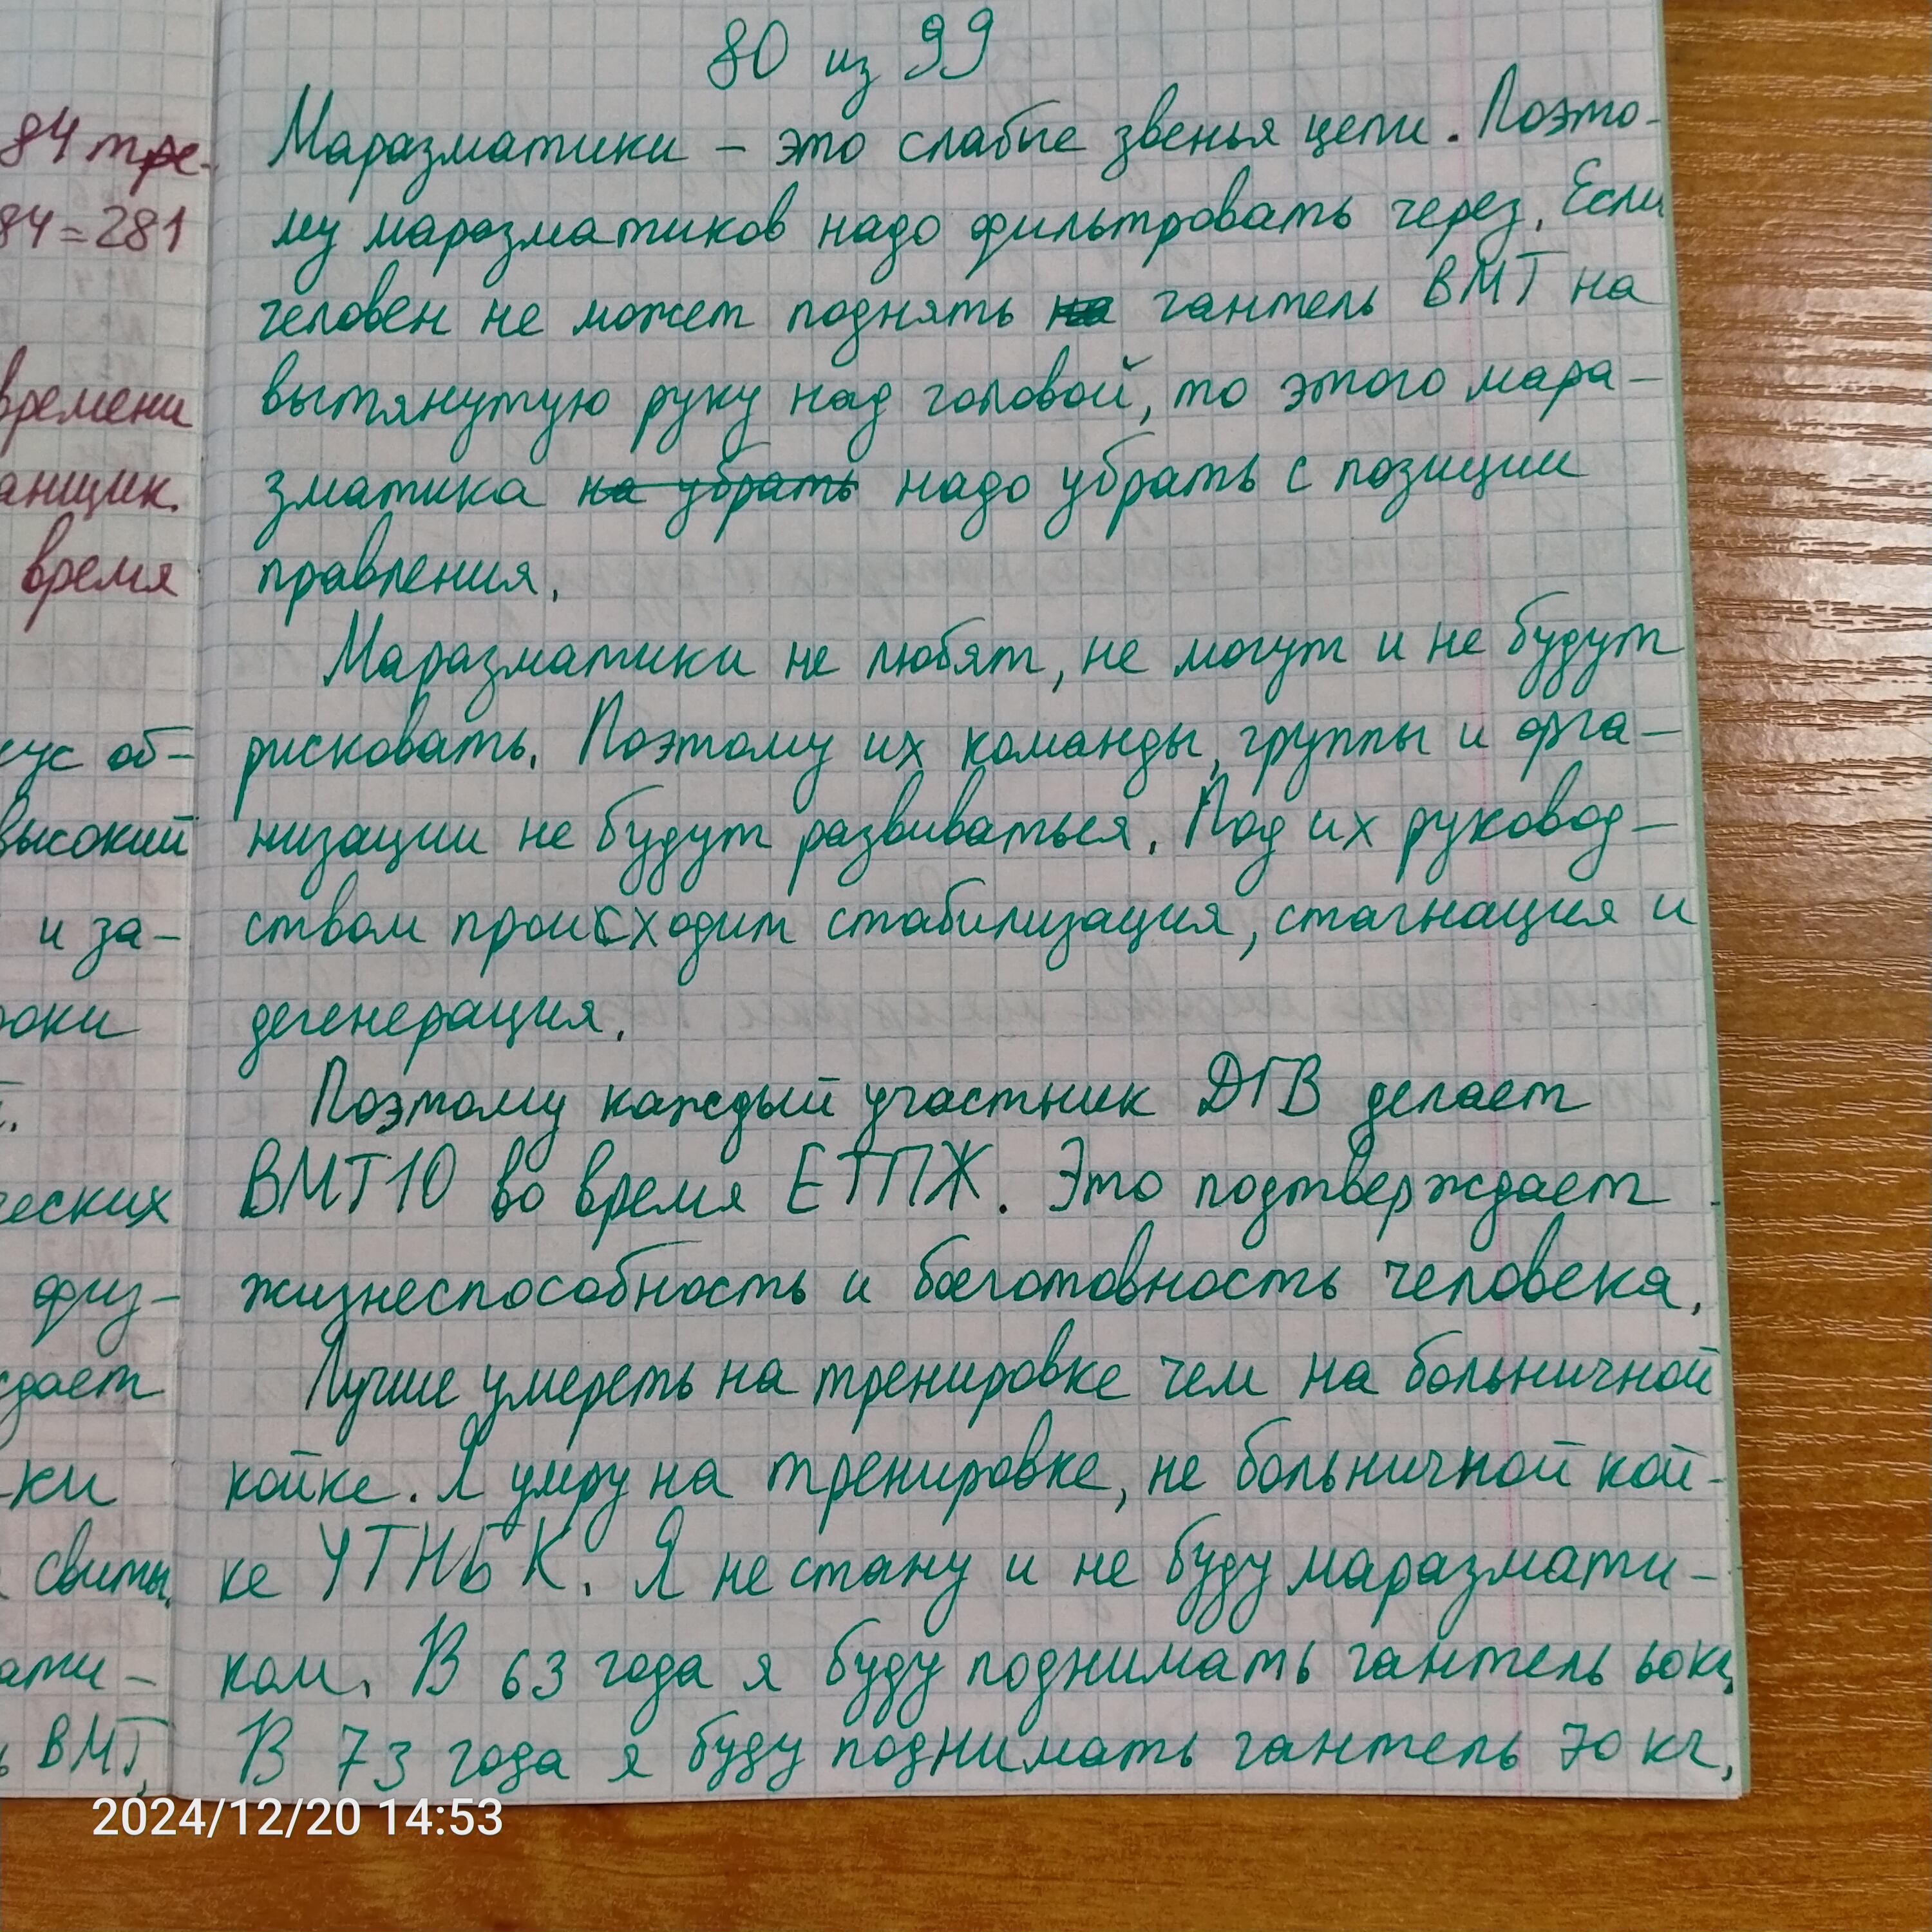 80 из 99
84 тре-
84=281
времени
анщик.
время
кус об-
высокий
и за-
роки
т.
ческих
физ-
ждает
-ки
свиты.
ати-
ь ВМТ,
Маразматики – это слабые звенья цепи. Поэто-
му маразматиков надо фильтровать через. Если
человек не может поднять на гантель ВМТ на
вытянутую руку над головой, то этого мара-
зматика на убрать надо убрать с позиции
правления.
Маразматики не любят, не могут и не будут
рисковать. Поэтому их команды, группы и орга-
низации не будут развиваться. Под их руковод-
ством происходит стабилизация, стагнация и
дегенерация.
Поэтому каждый участник ДГВ делает
ВМТ10 во время ЕТПЖ. Это подтверждает
жизнеспособность и боеготовность человека.
Лучше умереть на тренировке чем на больничной
койке. Я умру на тренировке, не больничной кой-
ке УТНБК. Я не стану и не буду маразмати-
ком. В 63 года я буду поднимать гантель 60кг,
В 73 года я буду поднимать гантель 70 кг,
2024/12/20 14:53